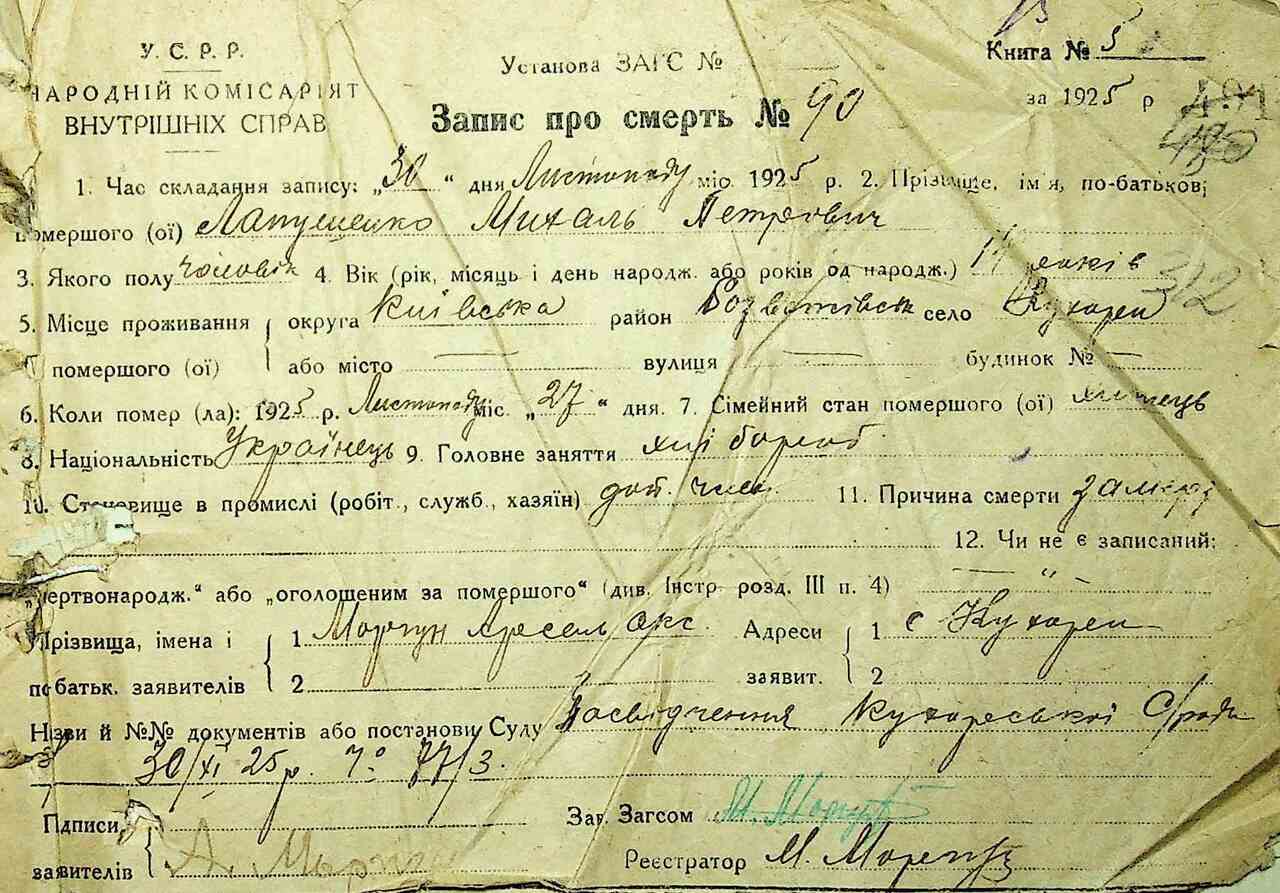 У.С.Р.Р.
НАРОДНІЙ КОМІСАРІЯТ
ВНУТРІШНІХ СПРАВ
Установа ЗАГС №
Книга № 5
за 1925 р
Запис про смерть № 90
1. Час складання запису: „30" дня Листопаду міс. 1925 р. 2. Прізвище, ім'я, по-батькові
помершого (ої) Михаль Петрович
3. Якого полу чоловік 4. Вік (рік, місяць і день народж. або років од народж.) років
312
5. Місце проживання округа Київська район село Кухарі
помершого (ої) або місто — вулиця — будинок № —
6. Коли помер (ла): 1925 р. Листопаду міс. „27" дня. 7. Сімейний стан помершого (ої)
8. Національність Українець 9. Головне заняття хлібороб
10. Становище в промислі (робіт., служб., хазяїн) 11. Причина смерти
12. Чи не є записаний:
„мертвонародж." або „оголошеним за помершого" (див. Інстр. розд. III п. 4) — " —
Прізвища, імена і 1 Моргун Адреси 1 с Кухарі
по батьк. заявителів 2 заявит. 2
Назви й №№ документів або постанови Суду Посвідчення Кухарської С/ради
30/XI 25 р. № 77/3.
Підписи Зав. Загсом
заявителів Реєстратор М.